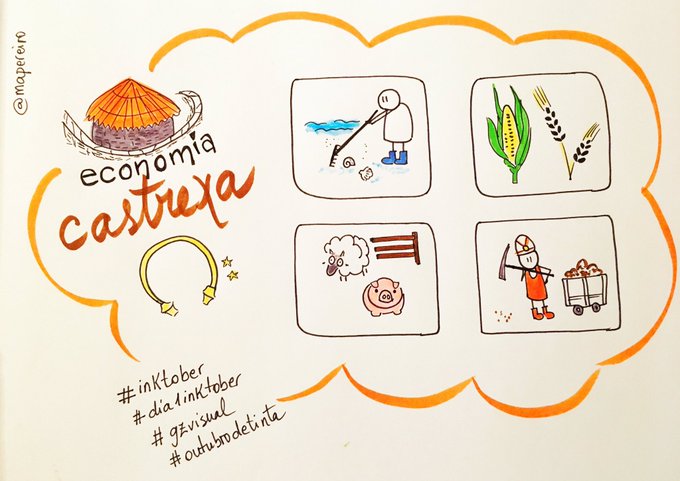 @mapereiro
economía
castrexa
#inktober
#dia1inktober
#gzvisual
#outubrodetinta